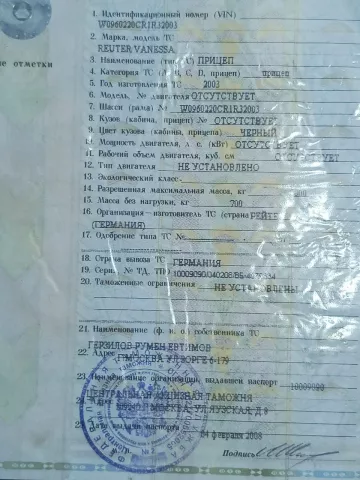 1. Идентификационный номер (VIN)
W0960220CR1RJ2003
2. Марка, модель ТС
REUTER VANESSA
3. Наименование (тип ТС) ПРИЦЕП
ые отметки
4. Категория ТС (А, В, С, D, прицеп) прицеп
5. Год изготовления ТС 2003
6. Модель, № двигателя ОТСУТСТВУЕТ
7. Шасси (рама) № W0960220CR1RJ2003
8. Кузов (кабина, прицеп) № ОТСУТСТВУЕТ
9. Цвет кузова (кабины, прицепа) ЧЕРНЫЙ
10. Мощность двигателя, л. с. (кВт) ОТСУТСТВУЕТ
11. Рабочий объем двигателя, куб. см ОТСУТСТВУЕТ
12. Тип двигателя НЕ УСТАНОВЛЕНО
13. Экологический класс
14. Разрешенная максимальная масса, кг
15. Масса без нагрузки, кг 700
16. Организация - изготовитель ТС (страна)
(ГЕРМАНИЯ)
17. Одобрение типа ТС №
18. Страна вывоза ТС ГЕРМАНИЯ
19. Серия, № ТД, ТПО
20. Таможенные ограничения НЕ УСТАНОВЛЕНЫ
21. Наименование (ф. и. о.) собственника ТС
РУМЕН ЕВТИМОВ
22. Адрес Г.МОСКВА УЛ.ВОРГЕ 6-179
23. Наименование организации, выдавшей паспорт
ЦЕНТРАЛЬНАЯ АКЦИЗНАЯ ТАМОЖНЯ
МОСКВА УЛ ЯУЗСКАЯ Д.9
Дата выдачи паспорта
04 февраля 2008
Подпись